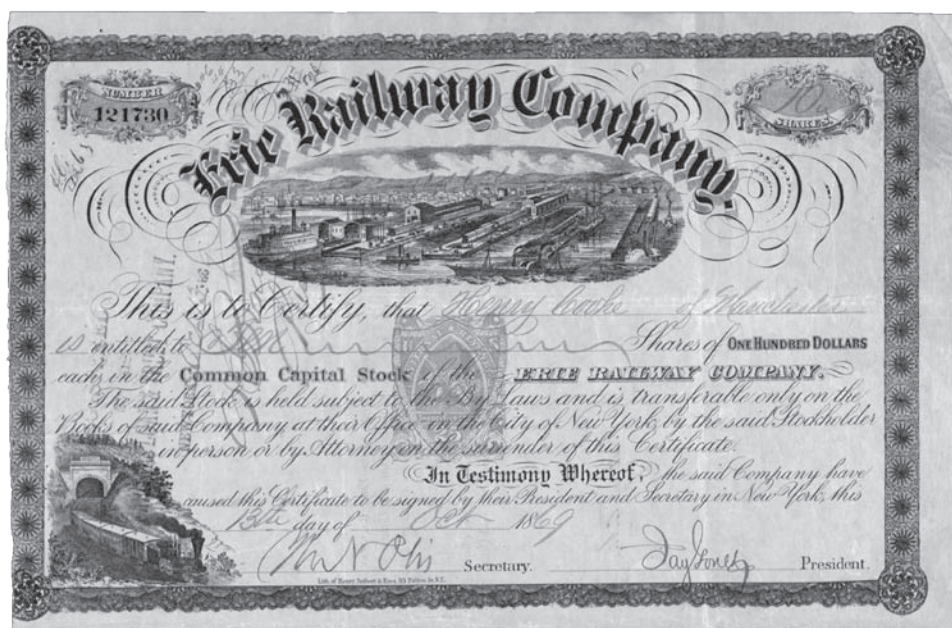 NUMBER
121730
SHARES.
Erie Railway Company.
This is to Certify, that Henry Cooke of Manchester
is entitled to Shares of ONE HUNDRED DOLLARS
each, in the Common Capital Stock of the ERIE RAILWAY COMPANY.
The said Stock is held subject to the By Laws and is transferable only on the
Books of said Company at their Office in the City of New York by the said Stockholder
in person or by Attorney on the surrender of this Certificate.
In Testimony Whereof, the said Company have
caused this Certificate to be signed by their President and Secretary in New York, this
13th day of Oct 1869
Secretary. Jay Gould President.